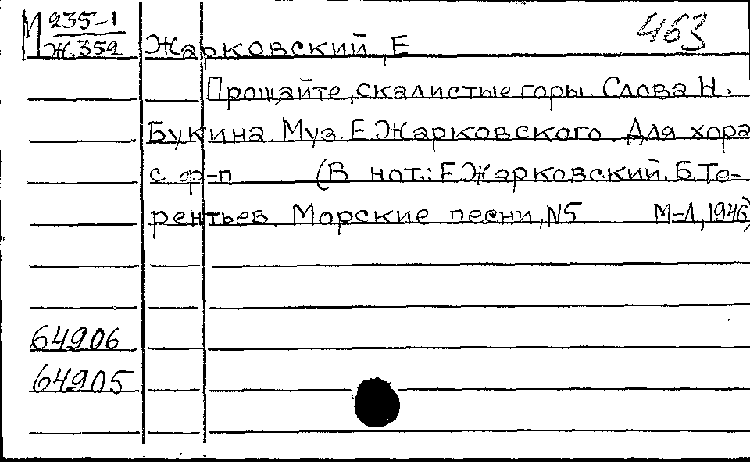 М 235-1
Ж 352
463
Жарковский, Е
Прощайте, скалистые горы. Слова Н.
Букина. Муз. Е. Жарковского. Для хора
с ф-п (В нот.: Е. Жарковский. Б. Те-
рентьев. Морские песни, N5 М-Л, 1946)
64906
64905